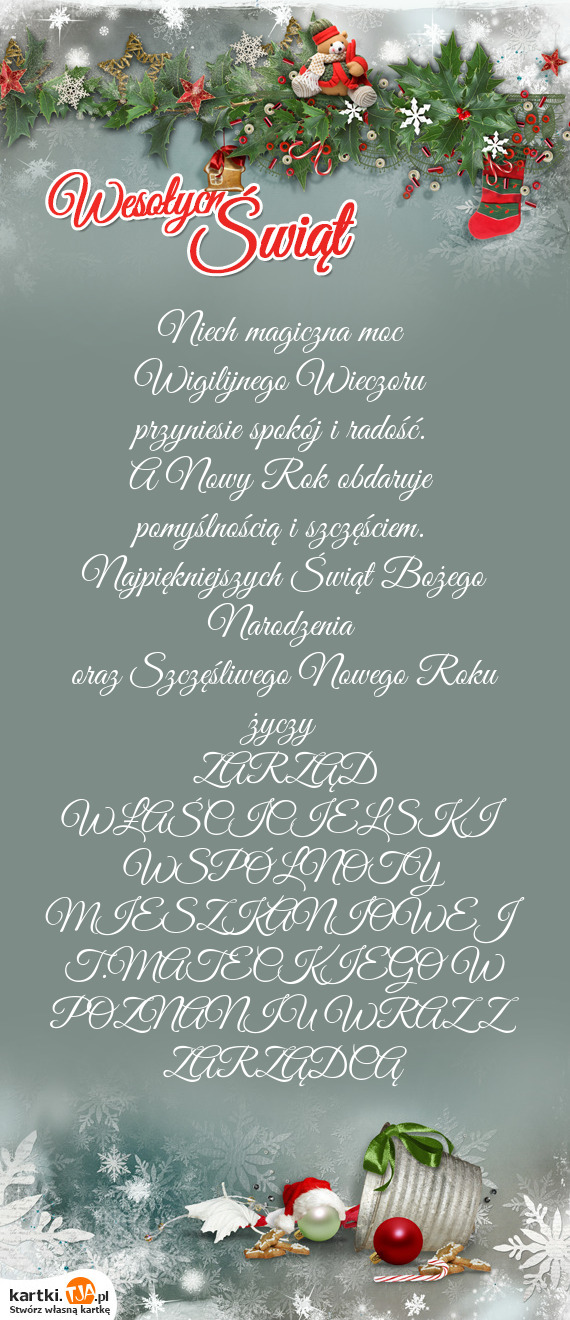 Wesołych
Świąt
Niech magiczna moc
Wigilijnego Wieczoru
przyniesie spokój i radość.
A Nowy Rok obdaruje
pomyślnością i szczęściem.
Najpiękniejszych Świąt Bożego
Narodzenia
oraz Szczęśliwego Nowego Roku
życzy
ZARZĄD
WŁAŚCICIELSKI
WSPÓLNOTY
MIESZKANIOWEJ
T.MATECKIEGO W
POZNANIU WRAZ Z
ZARZĄDCĄ
kartki.TJA.pl
Stwórz własną kartkę